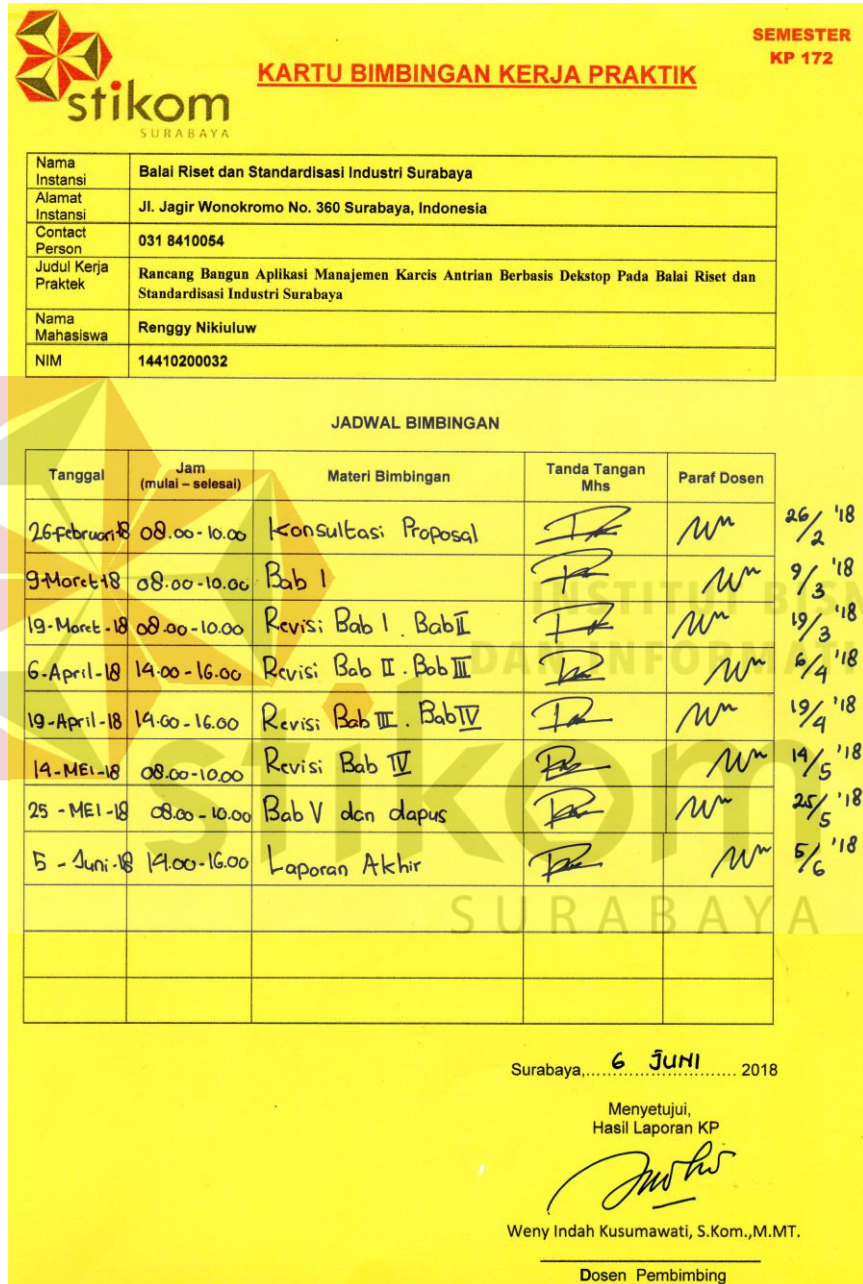 SEMESTER
KP 172
stikom
SURABAYA
KARTU BIMBINGAN KERJA PRAKTIK
Nama Instansi Balai Riset dan Standardisasi Industri Surabaya
Alamat Instansi Jl. Jagir Wonokromo No. 360 Surabaya, Indonesia
Contact Person 031 8410054
Judul Kerja Praktek Rancang Bangun Aplikasi Manajemen Karcis Antrian Berbasis Dekstop Pada Balai Riset dan
Standardisasi Industri Surabaya
Nama Mahasiswa Renggy Nikiuluw
NIM 14410200032
JADWAL BIMBINGAN
Tanggal Jam (mulai – selesai) Materi Bimbingan Tanda Tangan Mhs Paraf Dosen
26-Februari-18 08.00-10.00 Konsultasi Proposal 26/2 '18
9-Maret-18 08.00-10.00 Bab I 9/3 '18
19-Maret-18 08.00-10.00 Revisi Bab I. Bab II 19/3 '18
6-April-18 14.00-16.00 Revisi Bab II. Bab III 6/4 '18
19-April-18 14.00-16.00 Revisi Bab III. Bab IV 19/4 '18
14-MEI-18 08.00-10.00 Revisi Bab IV 14/5 '18
25-MEI-18 08.00-10.00 Bab V dan dapus 25/5 '18
5-Juni-18 14.00-16.00 Laporan Akhir 5/6 '18
INSTITUT BISN
DAN INFORMATI
stikom
SURABAYA
Surabaya, 6 JUNI 2018
Menyetujui,
Hasil Laporan KP
Weny Indah Kusumawati, S.Kom.,M.MT.
Dosen Pembimbing